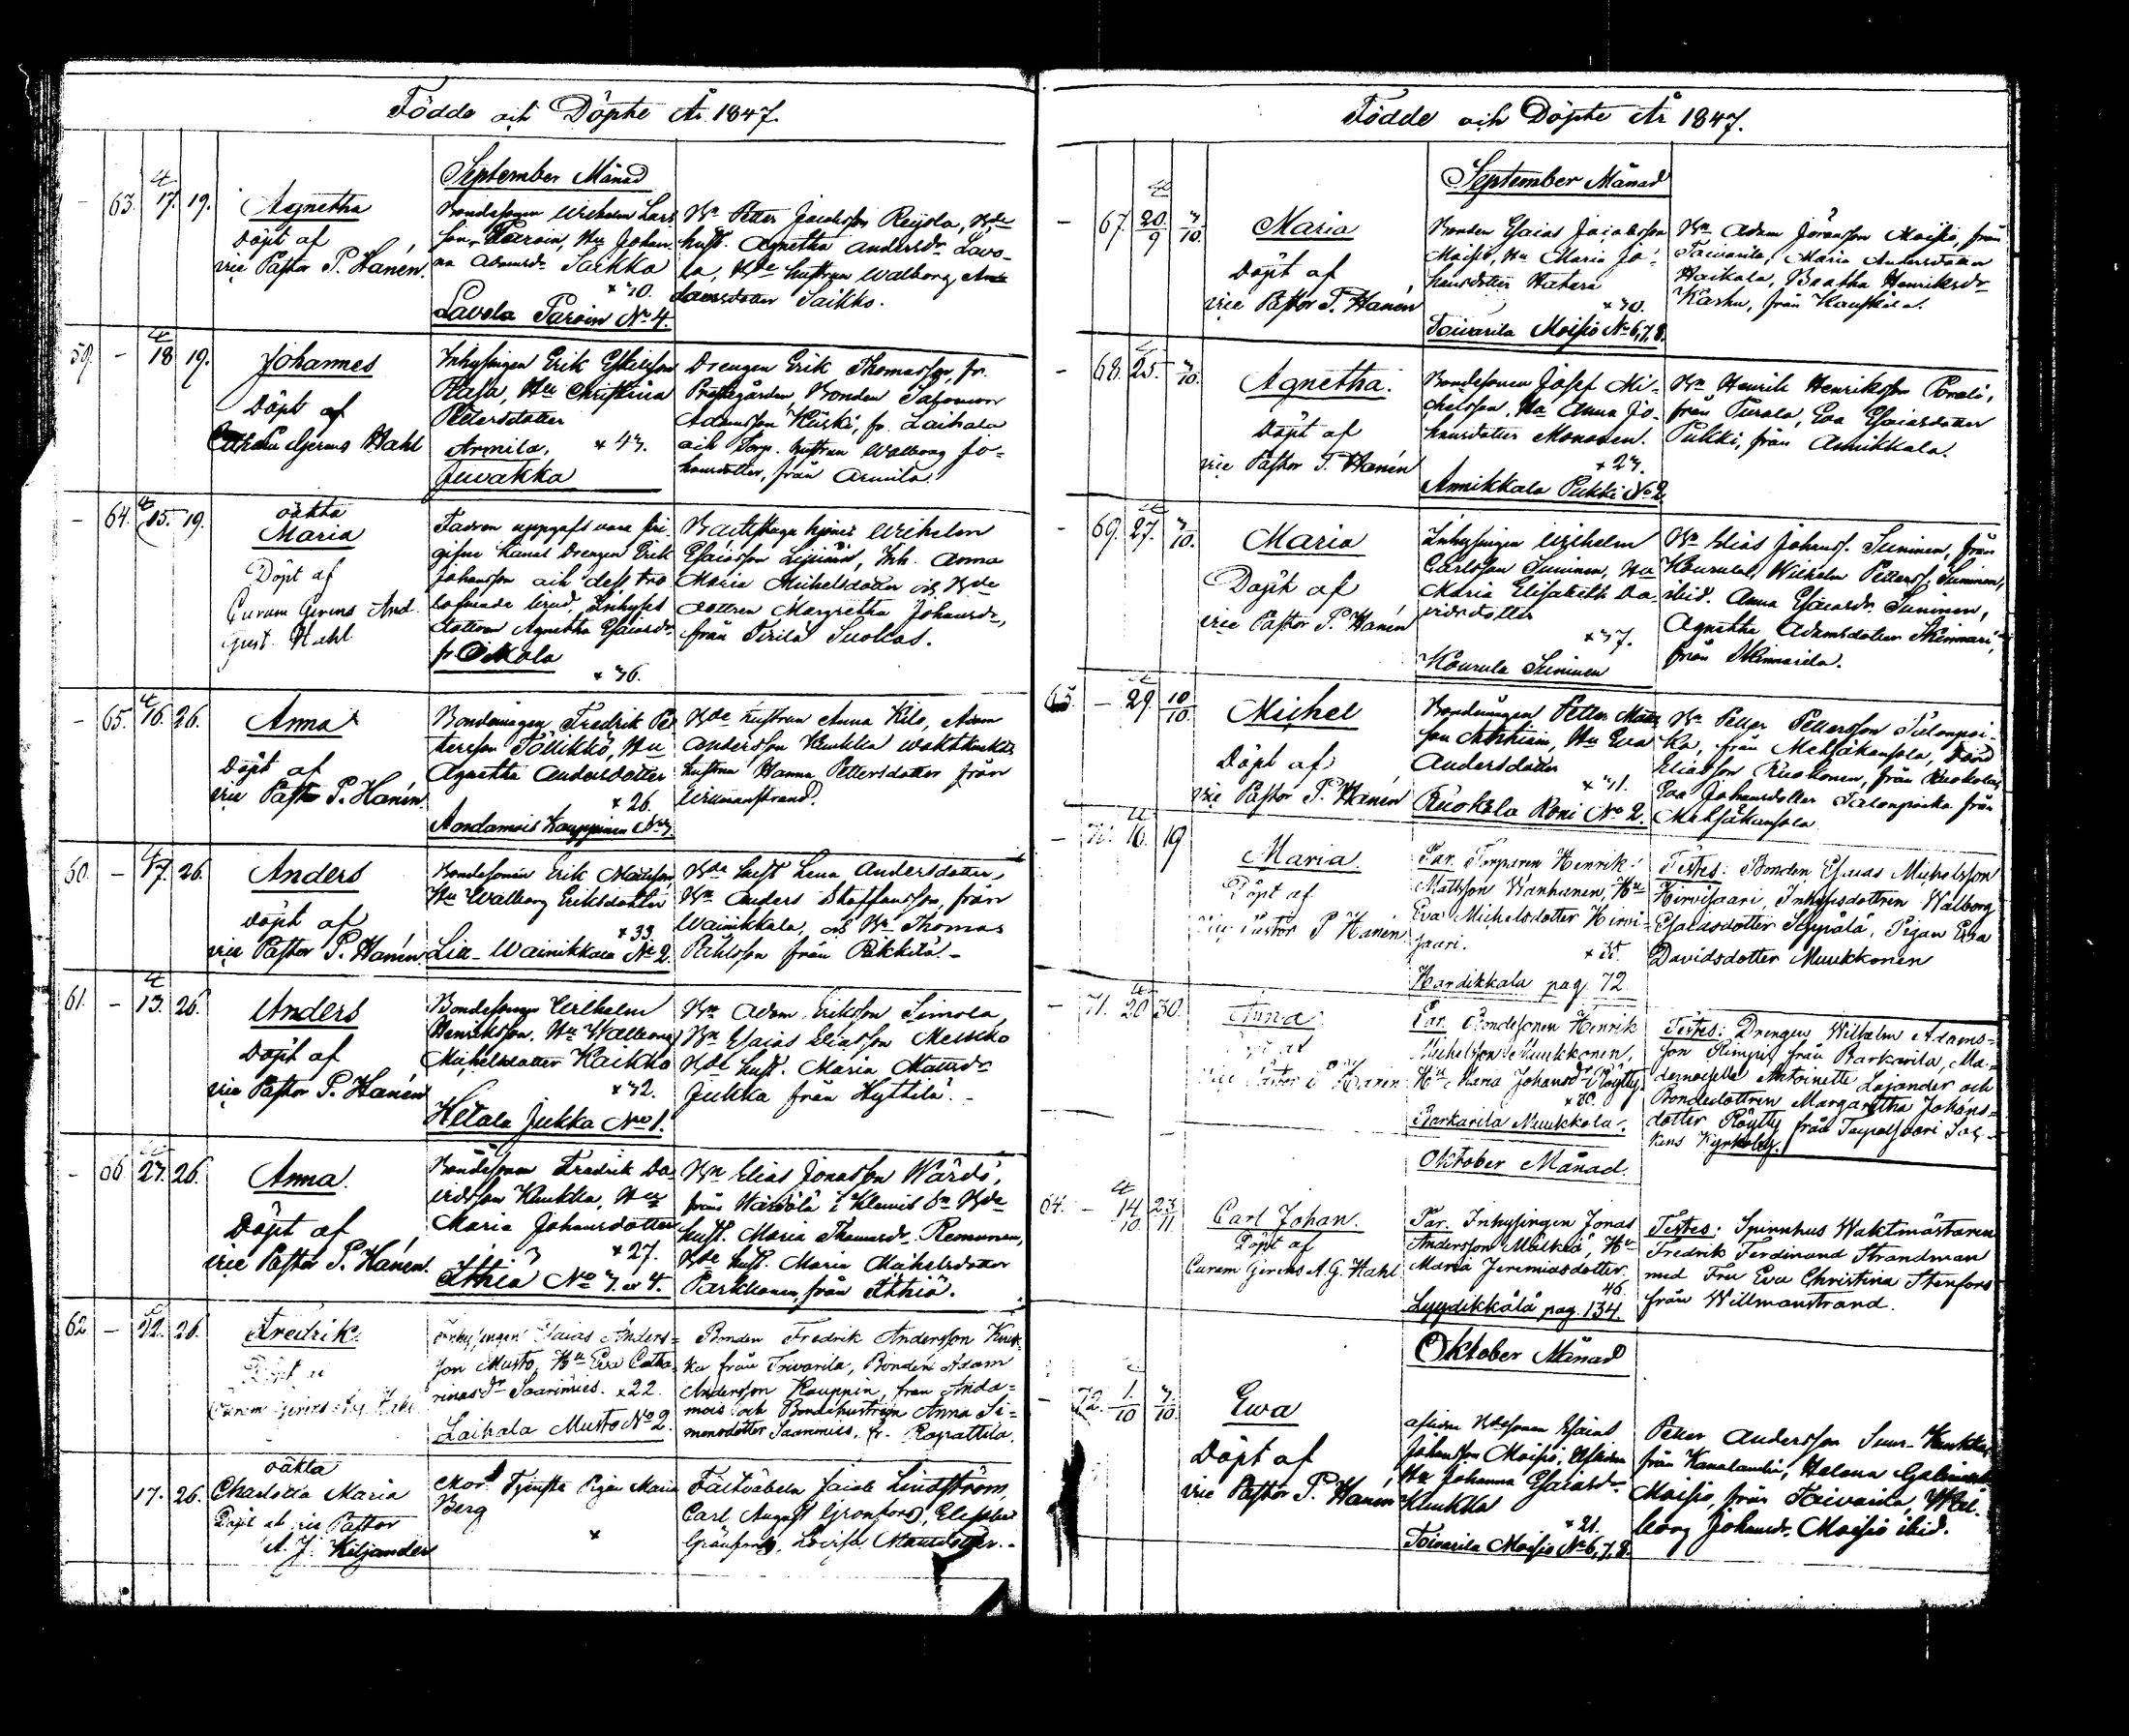 Födde och Döpte År 1847.
September Månad
63. 17. 19. Agnetha
Döpt af
vice Pastor P. Hanén.
Bondesonen Wilhelm Lars
son Paroin, Hu Johan
na Adamsdr Saikko
× 30.
Lavola Paroin No 4.
Bn Petter Jacobsson Reijola, Bde
hust. Agnetha Andersdr Lavo-
la, Bde hustrun Walborg
Larsdotter Saikko.
59. – 18 19. Johannes
Döpt af
Gerens Hahl
Inhysingen Erik
Hu Christina
Pettersdotter
Armila, × 43.
Juvakka
Drengen Erik Thomasson, fr.
Prestgården, Bonden Salomon
Adamsson Kiiski, fr. Laihala
och Torp. hustrun Walborg Jo-
hansdotter, från Armila.
– 64. 15. 19. oäkta
Maria
Döpt af
Curam Gerens And.
Gust. Hahl
Fadren uppgafs vara fri
gifne Drengen Erik
Johansson och dess tro
lofvade brud, Inhyses
dottren Agnetha Esaiasdr
fr Ojkola
× 36.
Wilhelm
Esaiasson Inh. Anna
Maria Michelsdotter och Bde
dottren Margretha Johansdr,
från Tirilä Suokas.
– 65. 16. 26. Anna
Döpt af
vice Pastor P. Hanén.
Bondemågen Fredrik Pet
tersson Töllikkö, Hu
Agnetha Andersdotter
× 26.
Andamois Kauppinen No 3.
Bde hustrun Anna Kilo, Adam
Andersson Kuukka
hustru Hanna Pettersdotter från
Willmanstrand.
60. – 17. 26. Anders
Döpt af
vice Pastor P. Hanén.
Bondesonen Erik Mattsson,
Hu Walborg Eriksdotter
× 33.
Lia- Wainikkala No 2.
Bde hust Lena Andersdotter,
Bn Anders Staffansson, från
Wainikkala, och Bn Thomas
Påhlsson från Rikkilä. –
61. – 13. 26. Anders
Döpt af
vice Pastor P. Hanén
Bondesonen Wilhelm
Henriksson, Hu Walborg
Michelsdotter Kaikko
× 32.
Hetala Jukka No 1.
Bn Adam Eriksson Simola,
Bn Esaias Eliasson
Bde hust. Maria Mattsdr
Jukka från Hyttilä. –
– 66 27. 26. Anna.
Döpt af
vice Pastor P. Hanén.
Bondesonen Fredrik Da
vidsson Kuukka, Hu
Maria Johansdotter
× 27.
Ihhiä No 3. o 4.
Bn Elias Jonasson Wärdi,
från Wärdölä i Klemis Sn Bde
hust. Maria Thomasdr Remunen,
Bde hust. Maria Michelsdotter
Parkkonen, från Ihhiä.
62 – 12. 26. Fredrik.
Inhysingen Esaias Anders=
son Musto, Hu Eva Catha
rinasdr Saarimies. × 22.
Laihala Musto No 2.
Bonden Fredrik Andersson Kuuk
ka från Toivarila, Bonden Adam
Andersson Kauppin, från Anda=
mois och Bondehustrun Anna Si=
monsdotter Saarimies, fr. Rapattila.
17. 26. oäkta
Charlotta Maria
Döpt af vice Pastor
A. J. Kiljander
Mor: Tjenste Pigan Maria
Berg
×
Fältväbeln Jacob Lindström,
Carl August Grönfors,
Lovisa
Födde och Döpte År 1847.
September Månad
– 67. 20/9 3/10. Maria
Döpt af
vice Pastor P. Hanén
Bonden Esaias Jacobsson
Moisio, Hu Maria Jo-
hansdotter Hatara
× 30.
Toivarila Moisio No 6, 7, 8.
Bn Adam Jöransson Moisio, från
Toivarila, Maria Andersdotter
Haikala, Beatha Henriksdr
Karhu, från Kauskila.
– 68. 25. 3/10. Agnetha.
Döpt af
vice Pastor P. Hanén
Bondesonen Josef Mi-
chelsson, Hu Anna Jo-
hansdotter Mononen.
× 23.
Armikkala Pukki No 2
Bn Henrik Henriksson
från Purala, Eva Esaiasdotter
Pukki, från Armikkala.
– 69. 27. 3/10. Maria
Döpt af
vice Pastor P. Hanén
Inhysingen Wilhelm
Carlsson Suninen, Hu
Maria Elisabeth Da-
vidsdotter
× 37.
Kourula Suninen
Bn Elias Johanss. Suninen, från
Kourula, Wilhelm Petterss. Suninen,
ibid. Anna Esaiasdr Suninen,
Agnetha Adamsdotter Skinnari,
från Skinnarila.
63. – 29 10/10. Michel
Döpt af
vice Pastor P. Hanén
Bondmågen Petter Matts
son Hu Eva
Andersdotter
× 31.
Ruokola Roni No 2.
Bn Petter Pettersson Talonpoi-
ka, från Metsäkansola, David
Eliasson Ruokonen, från Ruokola,
Eva Johansdotter Talonpoika från
Metsäkansola
– 70. 16 19 Maria
Döpt af
Vice Pastor P. Hanén
Par. Torparen Henrik
Mattsson Wanhanen, Hu
Eva Michelsdotter Hirvi-
saari.
× 35.
Hardikkala pag. 72.
Testes: Bonden Esaias Michelsson
Hirvisaari, Inhysesdottren Walborg
Esaiasdotter Seppälä, Pigan Eva
Davidsdotter Muukkonen
– 71. 20 30. Anna
Döpt af
Vice Pastor P. Hanén
Par. Bondesonen Henrik
Michelsson Muukkonen,
Hu Maria Johansdr Röytty
× 30.
Barkarila Muukkola.
Testes: Drengen Wilhelm Adams=
son Rimpi från Barkarila, Ma=
demoiselle Antoinette Lajander och
Bondedottren Margaretha Johans=
dotter Röytty från Taipalsaari Soc-
kens Kyrkoby.
Oktober Månad.
64. – 14/10 23/11. Carl Johan.
Döpt af
Curam Gerens A. G. Hahl
Par. Inhysingen Jonas
Andersson Mälkiä, Hu
Maria Jeremiasdotter
46.
Lyydikkälä pag. 134.
Testes: Spinnhus Waktmästaren
Fredrik Ferdinand Strandman
med Fru Eva Christina Stenfors
från Willmanstrand.
Oktober Månad
– 72. 1./10 3/10. Ewa
Döpt af
vice Pastor P. Hanén
aflidne Bdesonen Esaias
Johansson Moisio,
Hu Johanna Esaiasdr
Kuukka
× 21.
Toivarila Moisio No 6, 7, 8.
Petter Andersson Suur-Kuukka
från Kanalandin, Helena
Moisio, från Toivarila, Wal-
borg Johansdr. Moisio ibid.